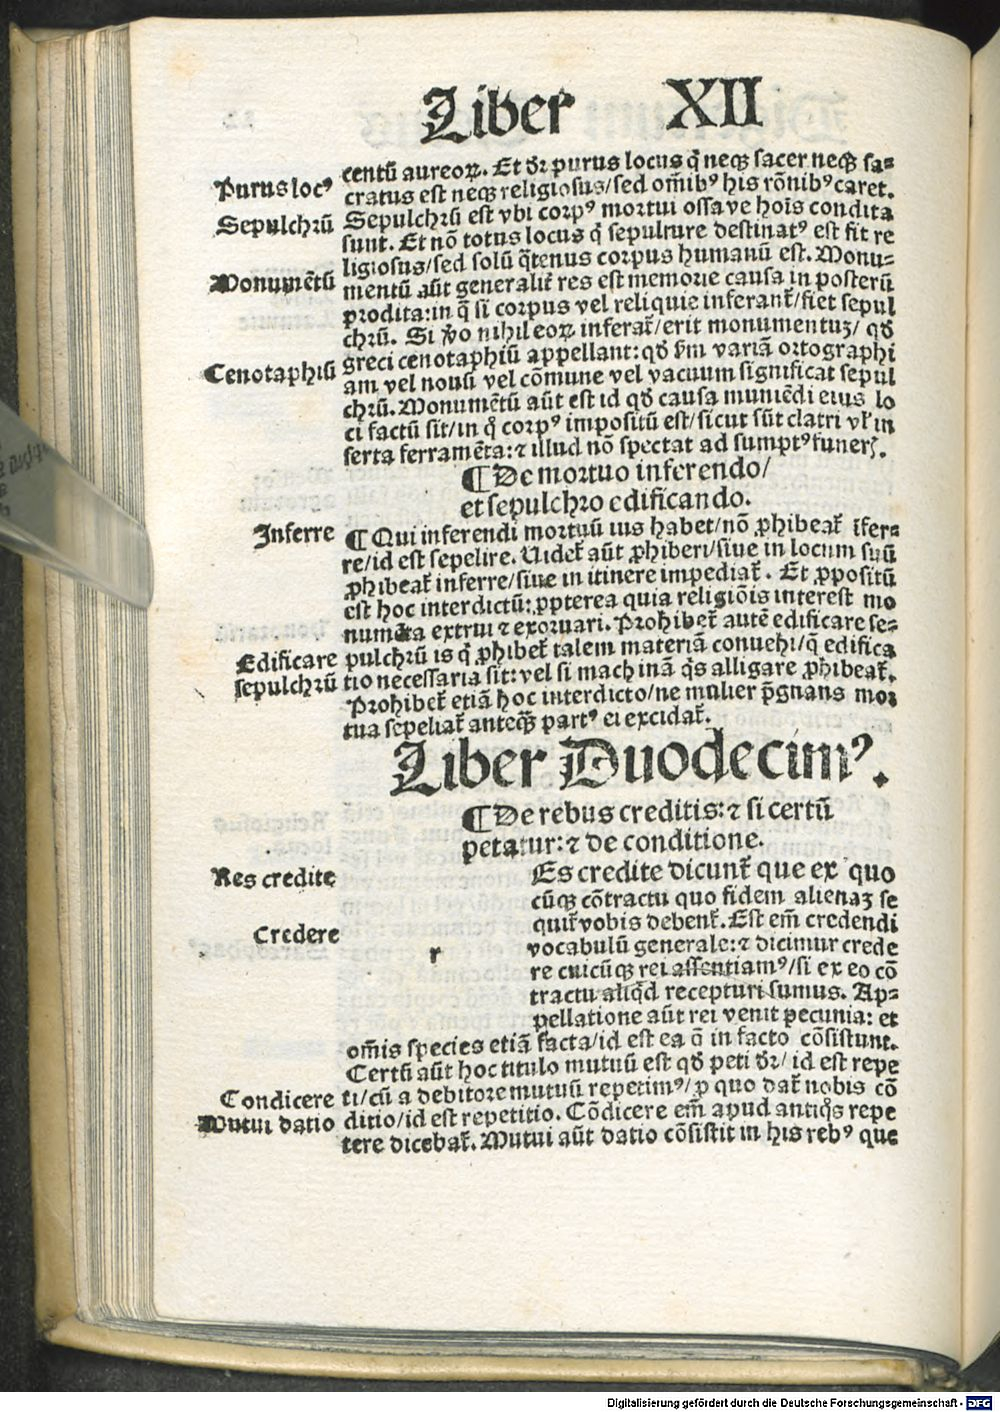 Liber XII
centũ aureoꝝ. Et dr̃ purus locus q̃ neqꝫ sacer neqꝫ sa⸗
Purus locꝰ
cratus est neqꝫ religiosus/sed om̃ibꝰ his rõnibꝰ caret.
Sepulchrũ
Sepulchrũ est vbi corpꝰ mortui ossa ve hoı̃s condita
sunt. Et nõ totus locus q̃ sepulture destinatꝰ est fit re
ligiosus/sed solũ q̃tenus corpus humanũ est. Monu⸗
Monumẽtũ
mentũ aũt generalit̃ res est memorie causa in posterũ
prodita: in q̃ si corpus vel reliquie inferant̃/fiet sepul
chrũ. Si ṽo nihil eoꝝ inferat̃/erit monumentuꝫ/ qd̃
Cenotaphiũ
greci cenotaphiũ appellant: qd̃ ẜm variã ortographi
am vel nouũ vel cõmune vel vacuum significat sepul
chrũ. Monumẽtũ aũt est id qd̃ causa muniẽdi eius lo
ci factũ sit/in q̊ corpꝰ impositũ est/sicut sũt clatri vl̃ in
serta ferramẽta: ⁊ illud nõ spectat ad sumptꝰ funerꝭ.
¶ De mortuo inferendo/
et sepulchro edificando.
Inferre
¶ Qui inferendi mortuũ ius habet/nõ ꝓhibeat̃ ı̃fer⸗
re/id est sepelire. Uidet̃ aũt ꝓhiberi/siue in locum suũ
ꝓhibeat̃ inferre/siue in itinere impediat̃. Et ꝓpositũ
est hoc interdictũ: ꝓpterea quia religiõis interest mo
numẽta extrui ⁊ exornari. Prohibet̃ autẽ edificare se⸗
Edificare
pulchrũ is q̃ ꝓhibet̃ talem materiã conuehi/q̃ edifica
sepulchrũ
tio necessaria sit: vel si machinã q̃s alligare ꝓhibeat̃.
Prohibet̃ etiã hoc interdicto/ne mulier p̃gnans mor
tua sepeliat̃ anteqꝫ̃ partꝰ ei excidat̃.
Liber Duodecimꝰ.
¶ De rebus creditis: ⁊ si certũ
petatur: ⁊ de conditione.
Res credite
Es credite dicunt̃ que ex quo
cũqꝫ cõtractu quo fidem alienaꝫ se
quit̃ vobis debent̃. Est em̃ credendi
Credere
r
vocabulũ generale: ⁊ dicimur crede
re cuicũqꝫ rei assentiamꝰ/si ex eo cõ
tractu aliq̃d recepturi sumus. Ap⸗
pellatione aũt rei venit pecunia: et
om̃is species etiã facta/id est ea q̃ in facto cõsistunt.
Certũ aũt hoc titulo mutuũ est qd̃ peti dr̃/ id est repe
Condicere
ti/cũ a debitore mutuũ repetimꝰ/ ꝓ quo dat̃ nobis cõ
Mutui datio
ditio/id est repetitio. Cõdicere em̃ apud antiq̃s repe
tere dicebat̃. Mutui aũt datio cõsistit in his rebꝰ que
Digitalisierung gefördert durch die Deutsche Forschungsgemeinschaft - DFG